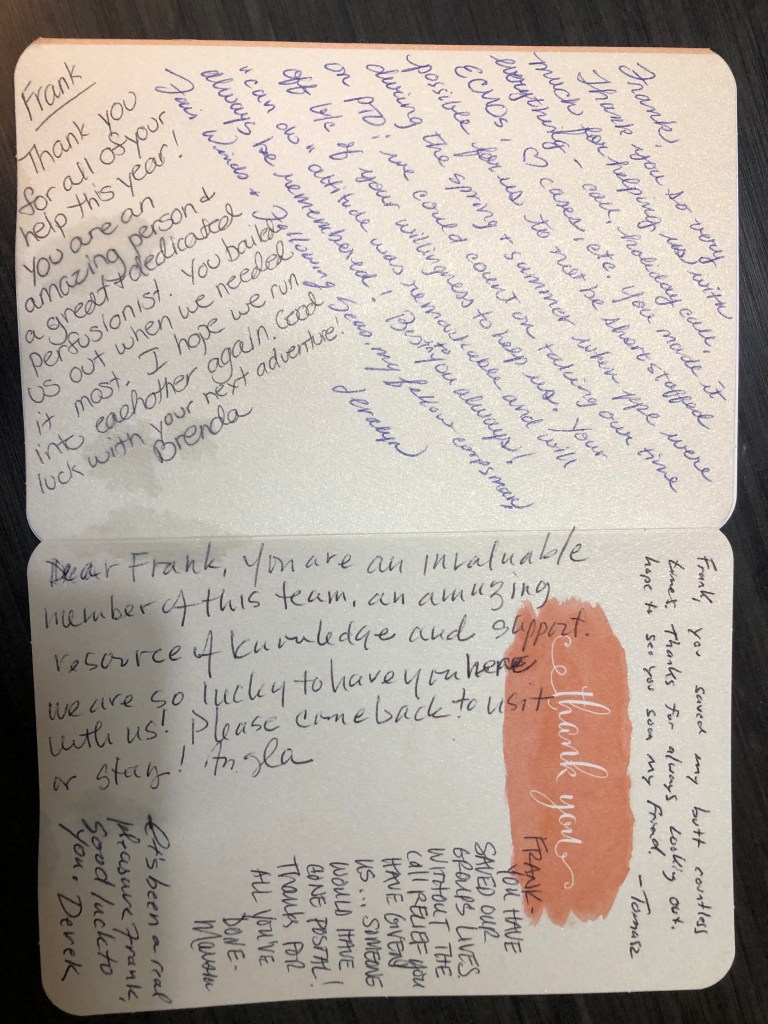 Frank
Thank you
for all of your
help this year!
You are an
amazing person &
a great & dedicated
perfusionist. You bailed
us out when we needed
it most. I hope we run
into eachother again. Good
luck with your next adventure!
Brenda
Frank,
Thank you so very
much for helping us with
everything - call, holiday call,
ECMOs, ♡ cases, etc. You made it
possible for us to not be short staffed
during the spring & summer when ppe were
on PTO; we could count on taking our time
off b/c of your willingness to help us. Your
"can do" attitude was remarkable and will
always be remembered! Best to you always!
Fair Winds & Following Seas, my fellow corpsman!
Jeralyn
Dear Frank, You are an invaluable
member of this team, an amazing
resource of knowledge and support.
we are so lucky to have you here
with us! Please come back to visit
or stay!
Frank, you saved my butt countless
times. Thanks for always looking out.
hope to see you soon my friend.
- Tomasz
thank you
FRANK-
YOU HAVE
SAVED OUR
GROUPS LIVES
WITHOUT THE
CALL RELIEF YOU
HAVE GIVEN
US... SOMEONE
WOULD HAVE
GONE POSTAL!
THANKS FOR
ALL YOU'VE
DONE-
It's been a real
pleasure Frank,
Good luck to
you. Derek